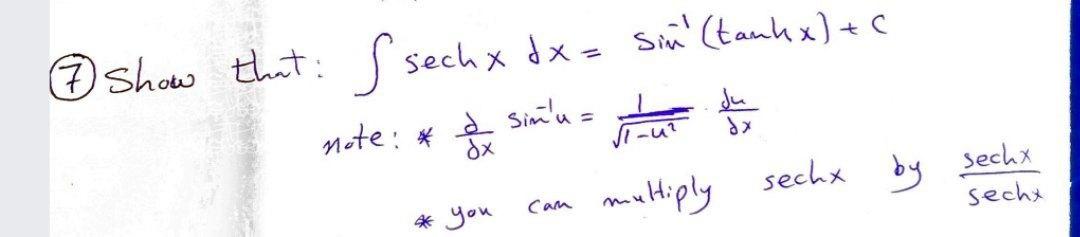 ⑦ Show that: ∫ sech x dx = sin⁻¹ (tanh x) + C
note: * d/dx sin⁻¹u = 1/√(1-u²) . du/dx
* you can multiply sechx by sechx/sechx